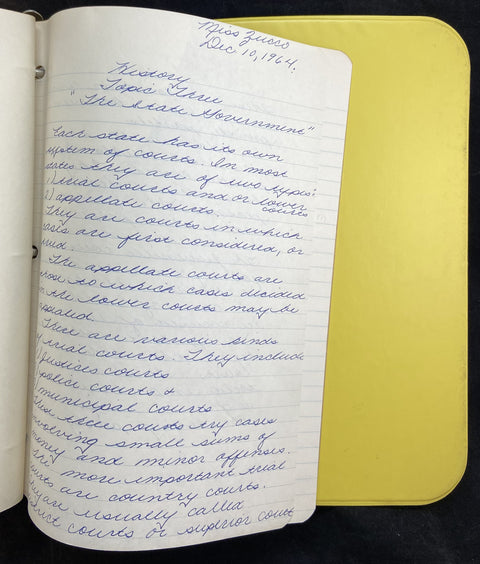 Miss Zucco
Dec 10, 1964.
History
Topic Three
"The State Government"
Each state has its own
system of courts. In most
states they are of two types:
1) trial courts and or lower
courts
2) appellate courts.
They are courts in which
cases are first considered, or
tried.
The appellate courts are
those to which cases decided
in the lower courts may be
appealed.
There are various kinds
of trial courts. They include
Justices courts
police courts &
municipal courts
These three courts try cases
involving small sums of
money and minor offenses.
The more important trial
courts are country courts.
They are usually called
district courts or superior court